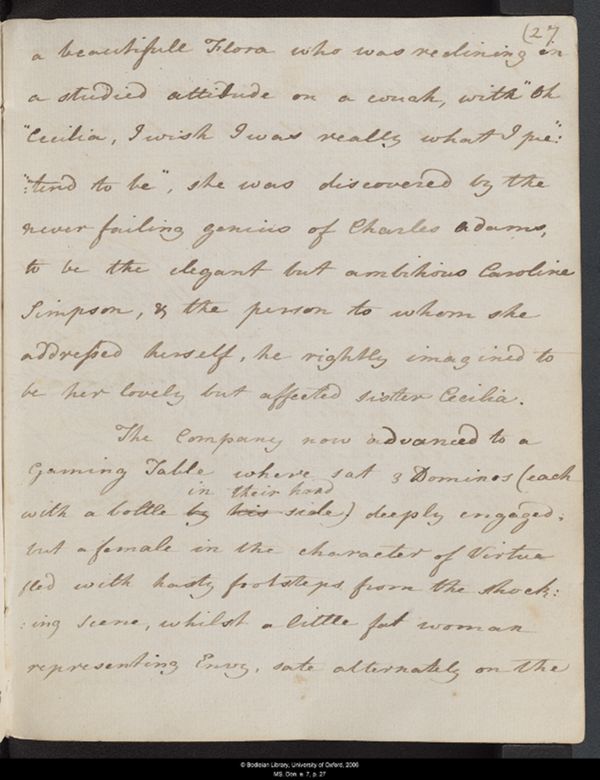 (27
a beautifull Flora who was reclining in
a studied attitude on a couch, with "Oh
"Cecilia, I wish I was really what I pre":
":tend to be", she was discovered by the
never failing genius of Charles Adams,
to be the elegant but ambitious Caroline
Simpson, & the person to whom she
addreſsed herself, he rightly imagined to
be her lovely but affected sister Cecilia.
The Company now advanced to a
Gaming Table where sat 3 Dominos (each
in their hand
with a bottle by his side) deeply engaged;
but a female in the character of Virtue
fled with hasty footsteps from the shock:
:ing scene, whilst a little fat woman
representing Envy, sate alternately on the
© Bodleian Library, University of Oxford, 2006
MS. Don. e. 7, p. 27